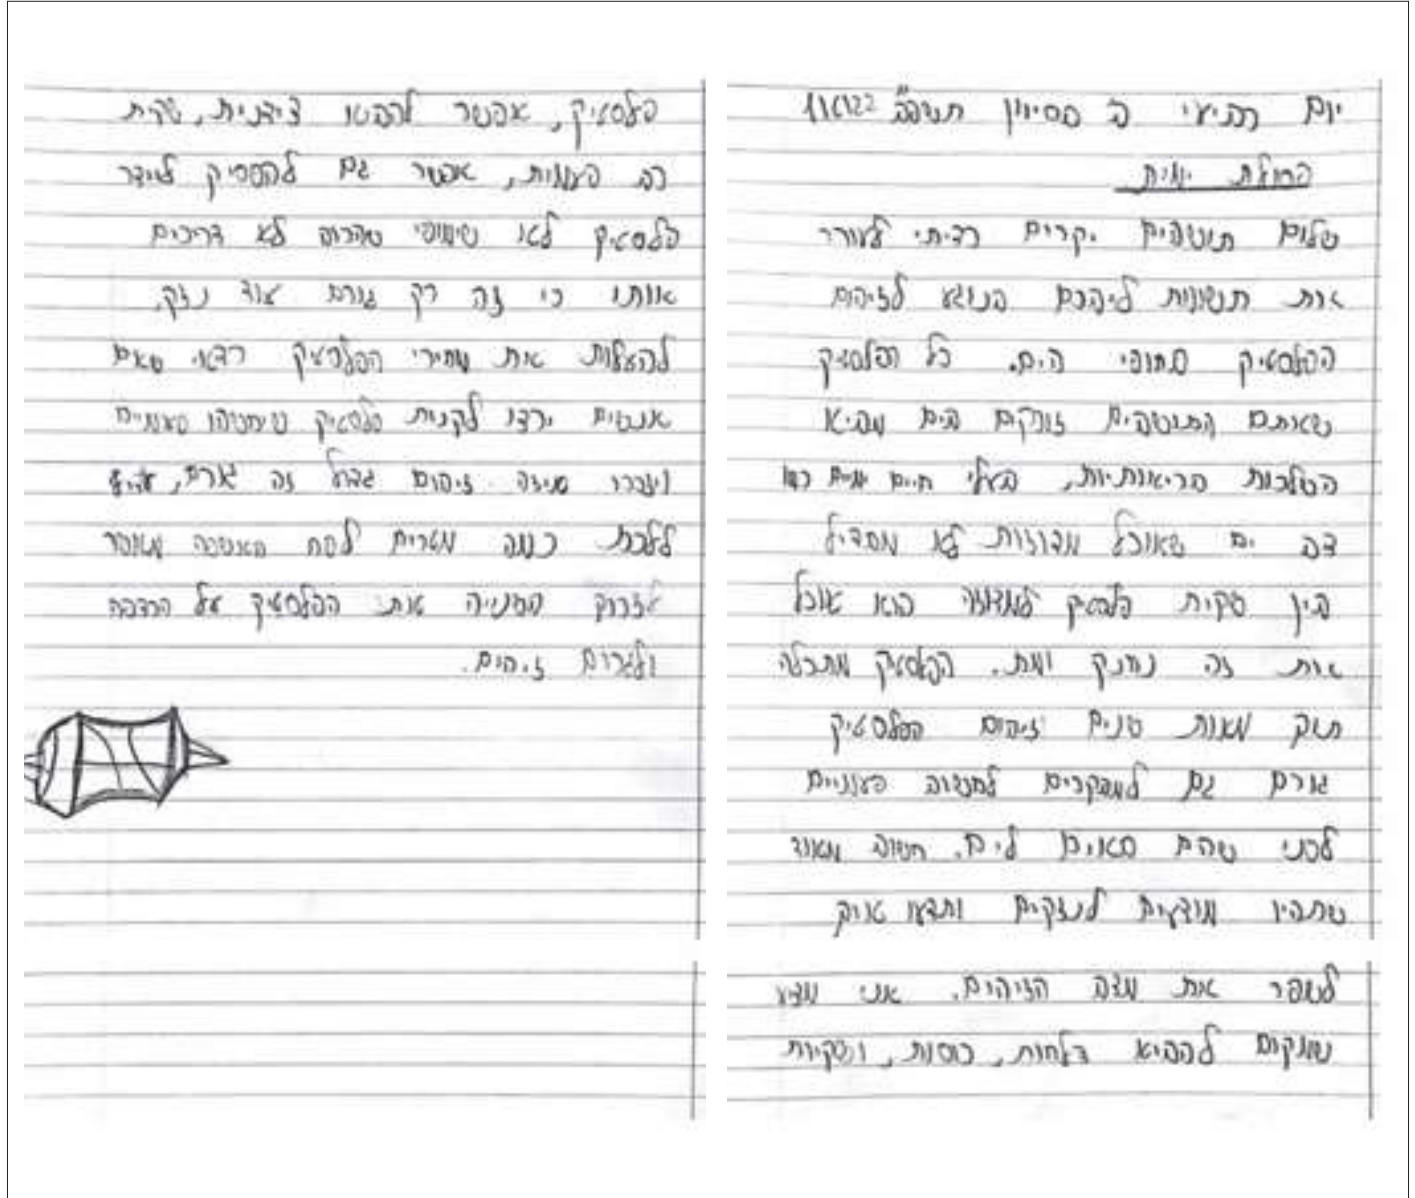 יום רביעי ב' בסיוון תשפ"ב 1/6/22
פחולת ימית
שלום תושבים יקרים רציתי לעורר
את תשומת ליבכם בנוגע לזיהום
הפלסטיק בחופי הים. כל הפלסטיק
שאתם התושבים זורקים בים מביא
השלכות בריאותיות, בעלי חיים ימיים כמו
צב ים שאוכל מדוזות לא מבדיל
בין שקית פלסטיק למדוזה הוא אוכל
את זה נחנק ומת. הפלסטיק מתכלה
תוך מאות שנים וזיהום הפלסטיק
גורם גם למבקרים לחשוב פעמיים
לפני שהם באים לים. חשוב מאוד
שתהיו מודעים לנזקים ותדעו איך
לשפר את מצב הזיהום. אני מציע
שמקום להביא צלחות, כוסות, ושקיות
פלסטיק, אפשר להביא צידנית, שהית
רב פעמית, אפשר גם להפסיק לייצר
פלסטיק לא שימושי שברוב לא צריכים
אותו כי זה רק גורם עוד נזק,
להעלות את מחירי הפלסטיק כדאי שאם
אנשים ירצו לקנות פלסטיק שיחשבו פעמיים
ויזכרו שיזה זיהום גדול זה גורם, עדיף
ללכת כמה מטרים לפח האשפה מאשר
לזרוק השנייה את הפלסטיק על הרצפה
ולגרום זיהום.